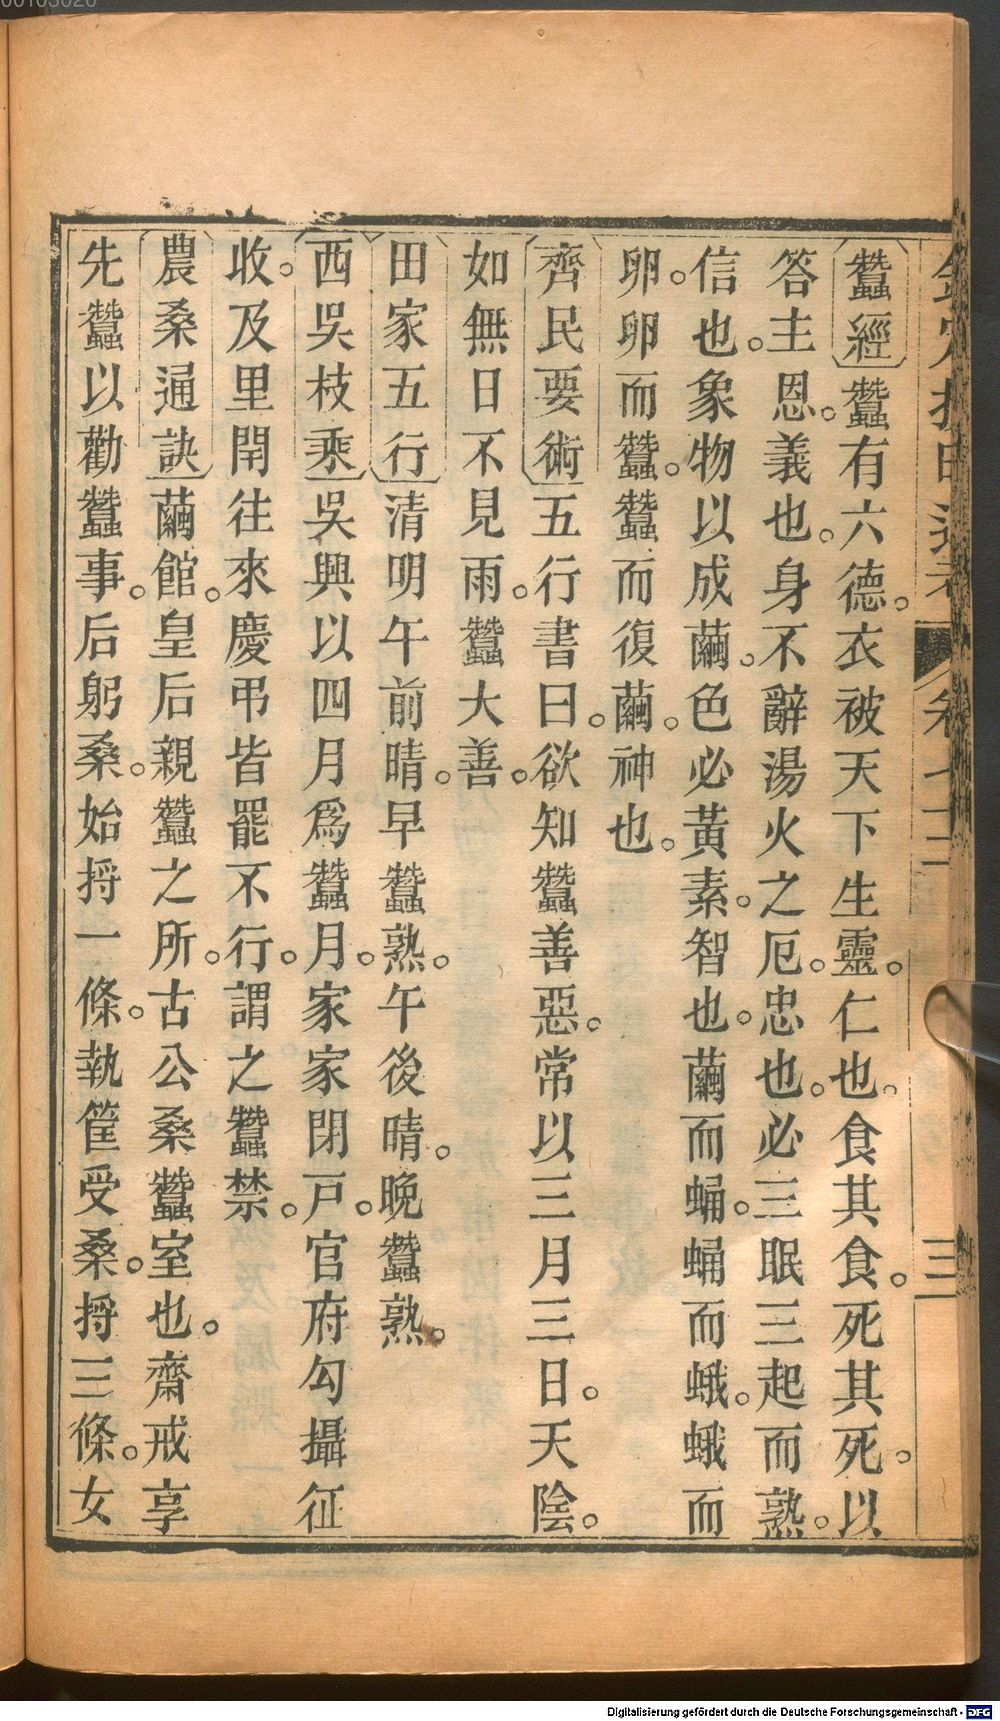 蠶經蠶有六德。衣被天下生靈。仁也。食其食。死其死。以
答主恩。義也。身不辭湯火之厄。忠也。必三眠三起而熟。
信也。象物以成繭。色必黃素。智也。繭而蛹。蛹而蛾。蛾而
卵。卵而蠶。蠶而復繭。神也。
齊民要術五行書曰。欲知蠶善惡。常以三月三日。天陰。
如無日不見雨。蠶大善。
田家五行清明午前晴。早蠶熟。午後晴。晚蠶熟。
西吳枝乘吳興以四月爲蠶月。家家閉戸。官府勾攝征
收。及里閈往來慶弔皆罷不行。謂之蠶禁。
農桑通訣繭館。皇后親蠶之所。古公桑蠶室也。齋戒享
先蠶以勸蠶事。后躬桑。始捋一條。執筐受桑。捋三條。女
卷七十二
三
Digitalisierung gefördert durch die Deutsche Forschungsgemeinschaft - DFG